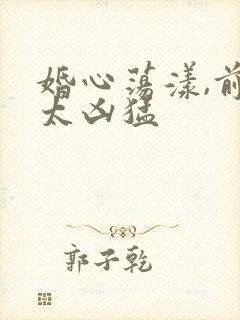 婚心荡漾,前
太凶猛
郭子乾